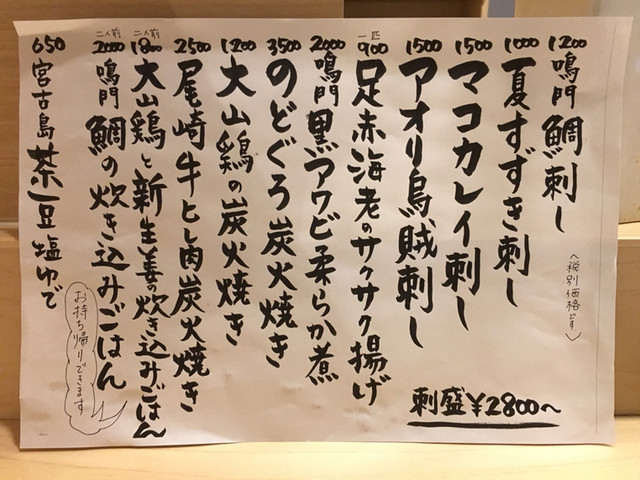 1200 鳴門 鯛刺し
1000 夏すずき刺し
1500 マコカレイ刺し
1500 アオリ烏賊刺し
一匹 900 足赤海老のサクサク揚げ
2000 鳴門 黒アワビ柔らか煮
3500 のどぐろ炭火焼き
1200 大山鶏の炭火焼き
2500 尾崎牛とし肉炭火焼き
二人前 1800 大山鶏と新生姜の炊き込みごはん
二人前 2000 鳴門 鯛の炊き込みごはん
650 宮古島 茶豆塩ゆで
〈税別価格です〉
刺盛¥2800〜
お持ち帰りできます